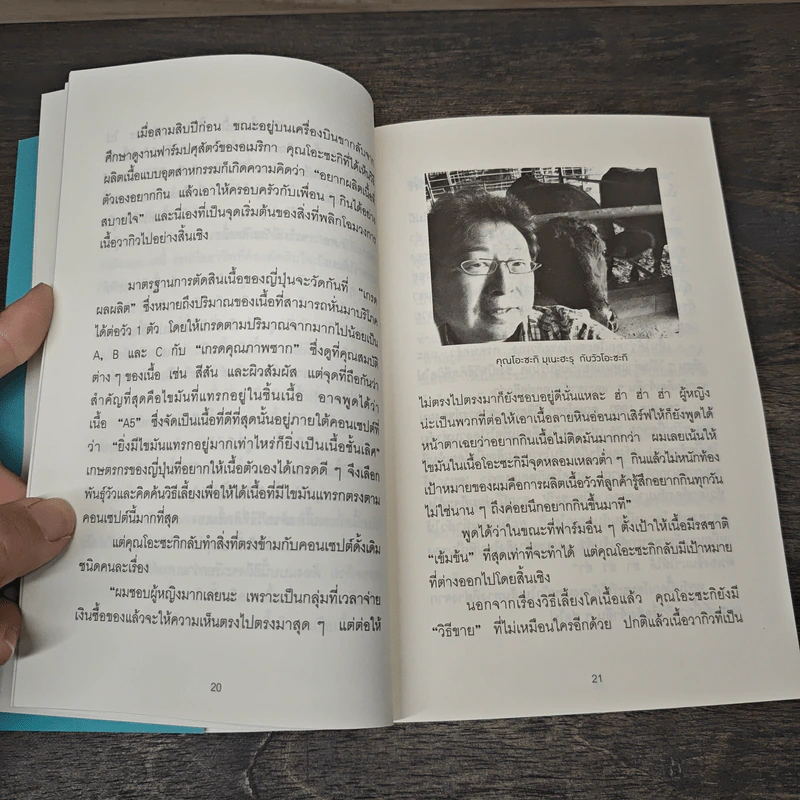 เมื่อสามสิบปีก่อน ขณะอยู่บนเครื่องบินขากลับจาก
ศึกษาดูงานฟาร์มปศุสัตว์ของอเมริกา คุณโอะซะกิที่ได้เห็น
ผลิตเนื้อแบบอุตสาหกรรมก็เกิดความคิดว่า “อยากผลิตเนื้อที่
ตัวเองอยากกิน แล้วเอาให้ครอบครัวกับเพื่อน ๆ กินได้อย่าง
สบายใจ” และนี่เองที่เป็นจุดเริ่มต้นของสิ่งที่พลิกโฉมวงการ
เนื้อวากิวไปอย่างสิ้นเชิง
มาตรฐานการตัดสินเนื้อของญี่ปุ่นจะวัดกันที่ “เกรด
ผลผลิต” ซึ่งหมายถึงปริมาณของเนื้อที่สามารถหั่นมาบริโภค
ได้ต่อวัว 1 ตัว โดยให้เกรดตามปริมาณจากมากไปน้อยเป็น
A, B และ C กับ “เกรดคุณภาพซาก” ซึ่งดูที่คุณสมบัติ
ต่าง ๆ ของเนื้อ เช่น สีสัน และผิวสัมผัส แต่จุดที่ถือกันว่า
สำคัญที่สุดคือไขมันที่แทรกอยู่ในชิ้นเนื้อ อาจพูดได้ว่า
เนื้อ “A5” ซึ่งจัดเป็นเนื้อที่ดีที่สุดนั้นอยู่ภายใต้คอนเซปต์ที่
ว่า “ยิ่งมีไขมันแทรกอยู่มากเท่าไหร่ก็ยิ่งเป็นเนื้อชั้นเลิศ”
เกษตรกรของญี่ปุ่นที่อยากให้เนื้อตัวเองได้เกรดดี ๆ จึงเลือก
พันธุ์วัวและคิดค้นวิธีเลี้ยงเพื่อให้ได้เนื้อที่มีไขมันแทรกตรงตาม
คอนเซปต์นี้มากที่สุด
แต่คุณโอะซะกิกลับทำสิ่งที่ตรงข้ามกับคอนเซปต์ดั้งเดิม
ชนิดคนละเรื่อง
“ผมชอบผู้หญิงมากเลยนะ เพราะเป็นกลุ่มที่เวลาจ่าย
เงินซื้อของแล้วจะให้ความเห็นตรงไปตรงมาสุด ๆ แต่ต่อให้
20
คุณโอะซะกิ มุเนะฮะรุ กับวัวโอะซะกิ
ไม่ตรงไปตรงมาก็ยังชอบอยู่ดีนั่นแหละ ฮ่า ฮ่า ฮ่า ผู้หญิง
น่ะเป็นพวกที่ต่อให้เอาเนื้อลายหินอ่อนมาเสิร์ฟให้ก็ยังพูดได้
หน้าตาเฉยว่าอยากกินเนื้อไม่ติดมันมากกว่า ผมเลยเน้นให้
ไขมันในเนื้อโอะซะกิมีจุดหลอมเหลวต่ำ ๆ กินแล้วไม่หนักท้อง
เป้าหมายของผมคือการผลิตเนื้อวัวที่ลูกค้ารู้สึกอยากกินทุกวัน
ไม่ใช่นาน ๆ ถึงค่อยนึกอยากกินขึ้นมาที”
พูดได้ว่าในขณะที่ฟาร์มอื่น ๆ ตั้งเป้าให้เนื้อมีรสชาติ
“เข้มข้น” ที่สุดเท่าที่จะทำได้ แต่คุณโอะซะกิกลับมีเป้าหมาย
ที่ต่างออกไปโดยสิ้นเชิง
นอกจากเรื่องวิธีเลี้ยงโคเนื้อแล้ว คุณโอะซะกิยังมี
“วิธีขาย” ที่ไม่เหมือนใครอีกด้วย ปกติแล้วเนื้อวากิวที่เป็น
21